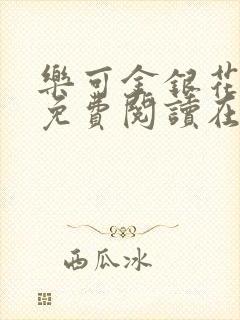 樂可金銀花
免費閱讀在
西瓜冰